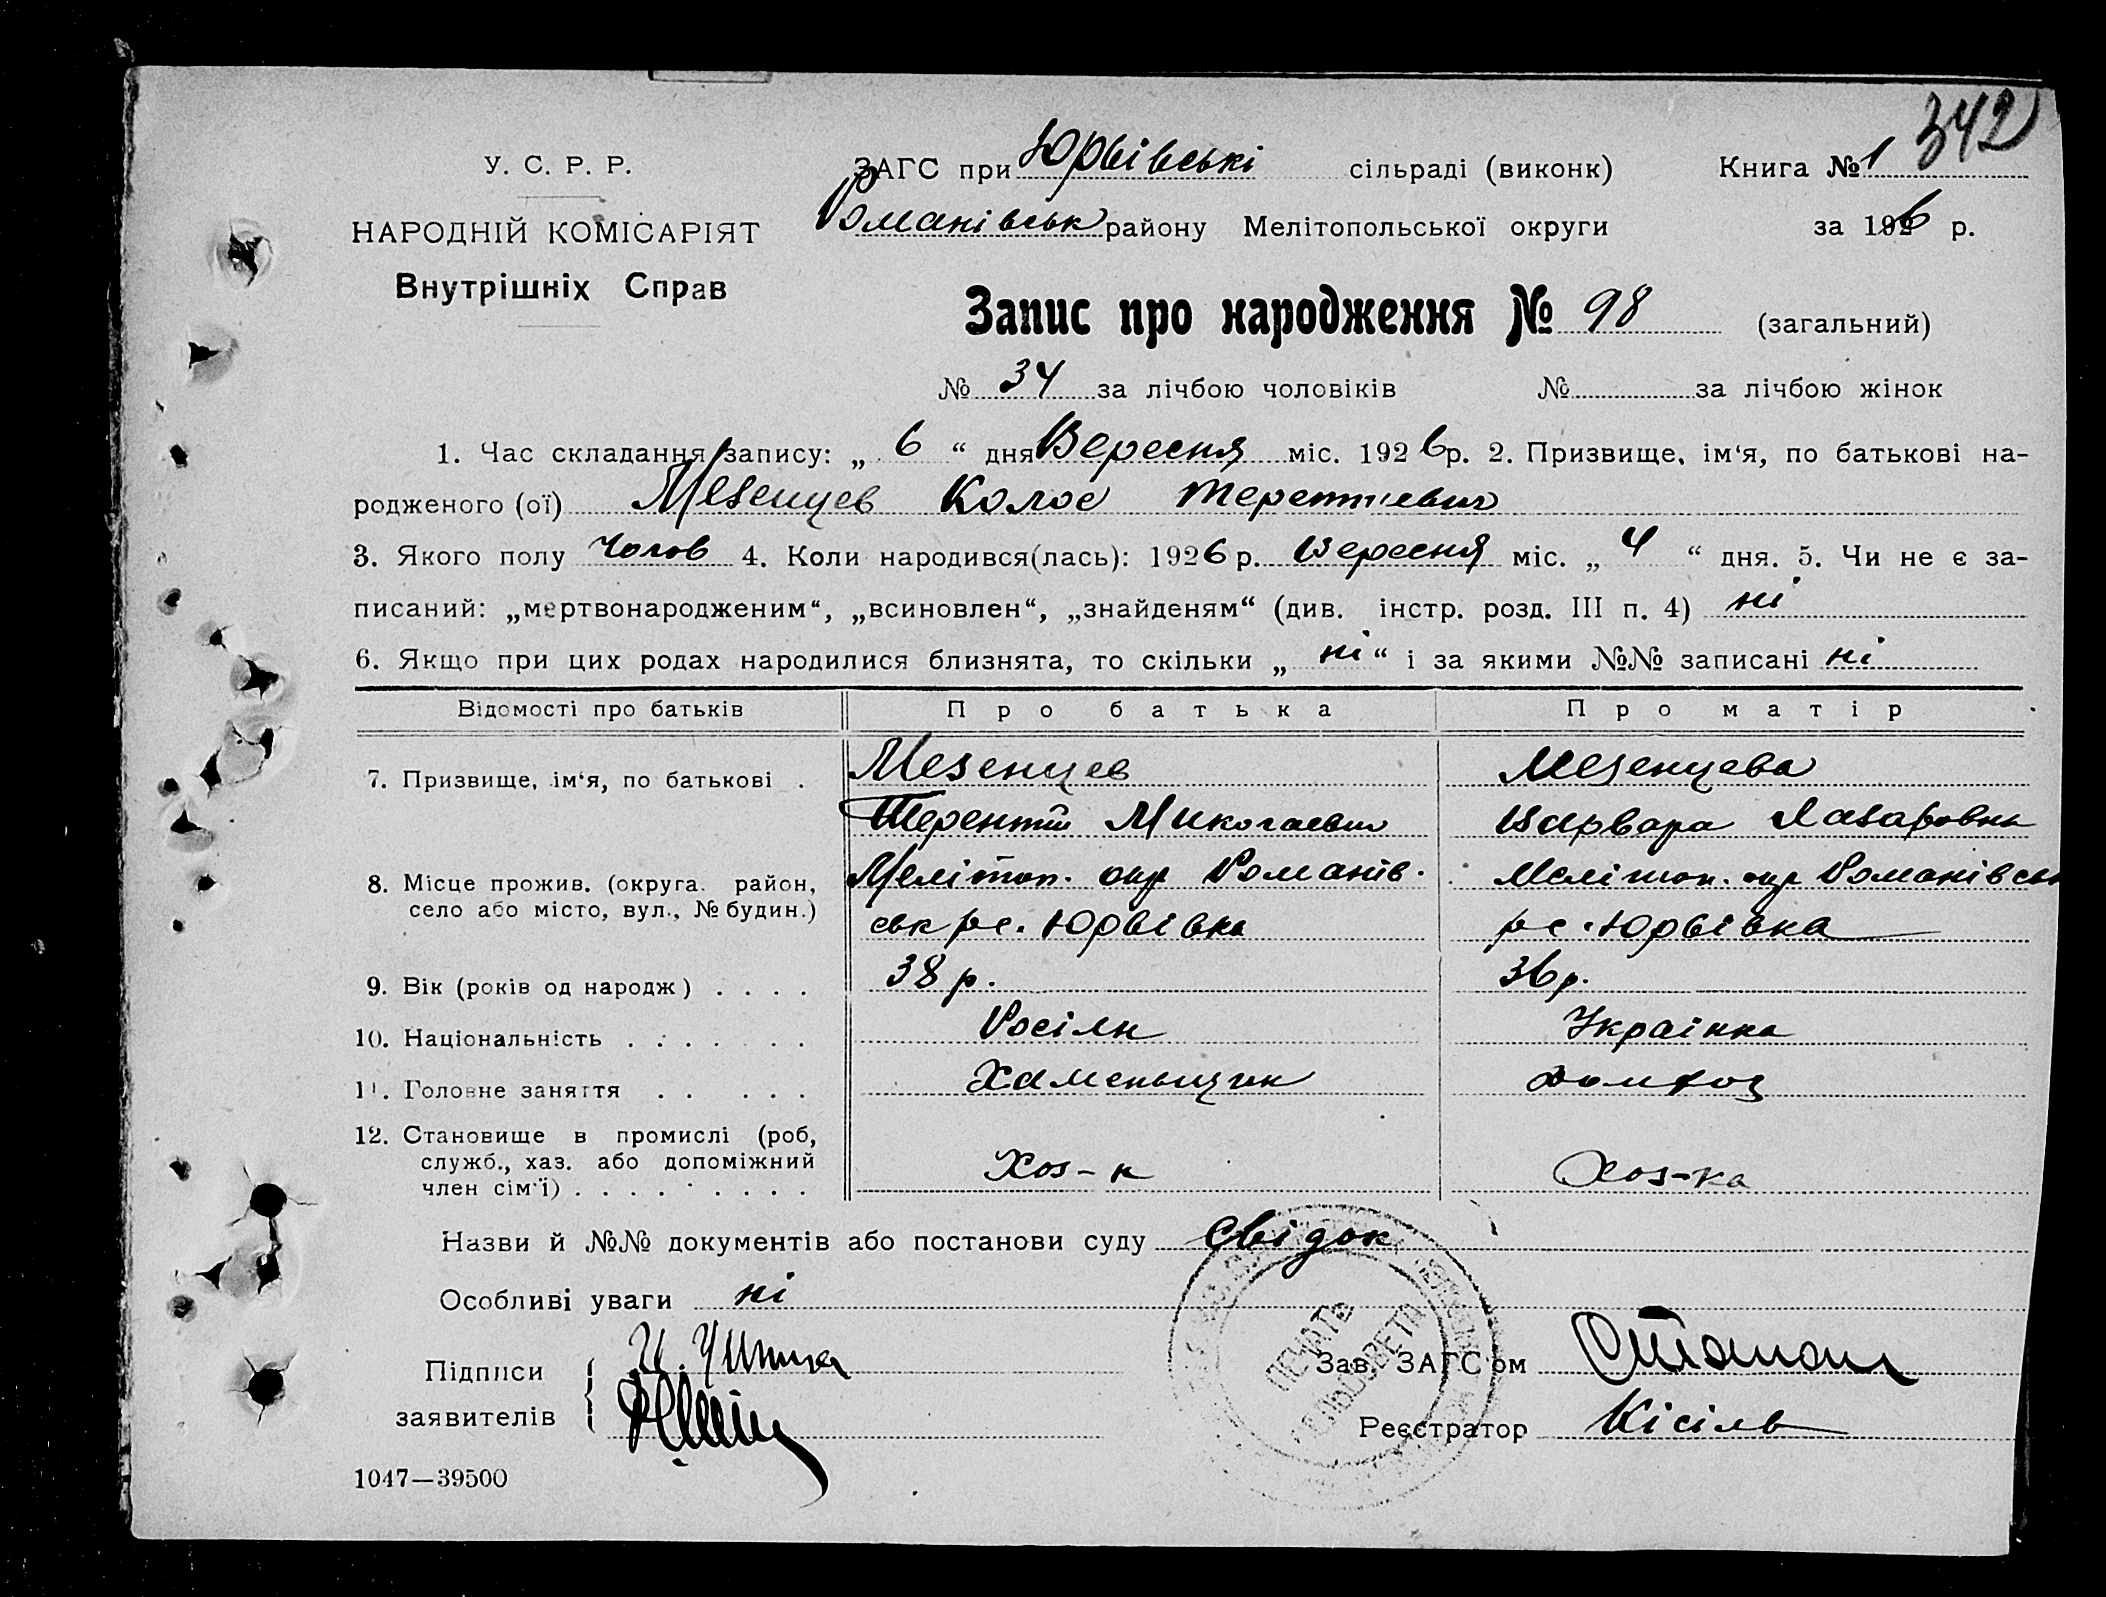 342
У. С. Р. Р. ЗАГС при Юрвівські сільраді (виконк) Книга № 1
НАРОДНІЙ КОМІСАРІЯТ Романівськ району Мелітопольської округи за 1926 р.
Внутрішніх Справ
Запис про народження № 98 (загальний)
№ 34 за лічбою чоловіків № за лічбою жінок
1. Час складання запису: „ 6 “ дня Вересня міс. 1926 р. 2. Призвище, ім‘я, по батькові на-
родженого (ої) Мезенцев Терентіевич
3. Якого полу Чолов 4. Коли народився(лась): 1926 р. Вересня міс. „ 4 “ дня. 5. Чи не є за-
писаний: „мертвонародженим“, „всиновлен“, „знайденям“ (див. інстр. розд. III п. 4) ні
6. Якщо при цих родах народилися близнята, то скільки „ ні “ і за якими №№ записані ні
Відомості про батьків Про батька Про матір
7. Призвище, ім‘я, по батькові . Мезенцев Мезенцева
Терентій Миколаевич Варвара Лазаровна
8. Місце прожив. (округа. район, Мелітоп. окр Романів- Мелітоп. окр Романівськ
село або місто, вул., № будин.) ськ р с. Юрвівка р с. Юрвівка
9. Вік (років од народж) . . . . 38 р. 36 р.
10. Національність . . . . . . . Росіян Українка
11. Головне заняття . . . . . Каменьщик домхоз
12. Становище в промислі (роб,
служб., хаз. або допоміжний Хоз-н Хоз-ка
член сім‘ї) . . . . . . . . .
Назви й №№ документів або постанови суду Свідок
Особливі уваги ні
ПЕЧАТЬ
СЕЛЬСОВЕТА
Підписи Зав. ЗАГС‘ом
заявителів Реєстратор Кісіль
1047—39500